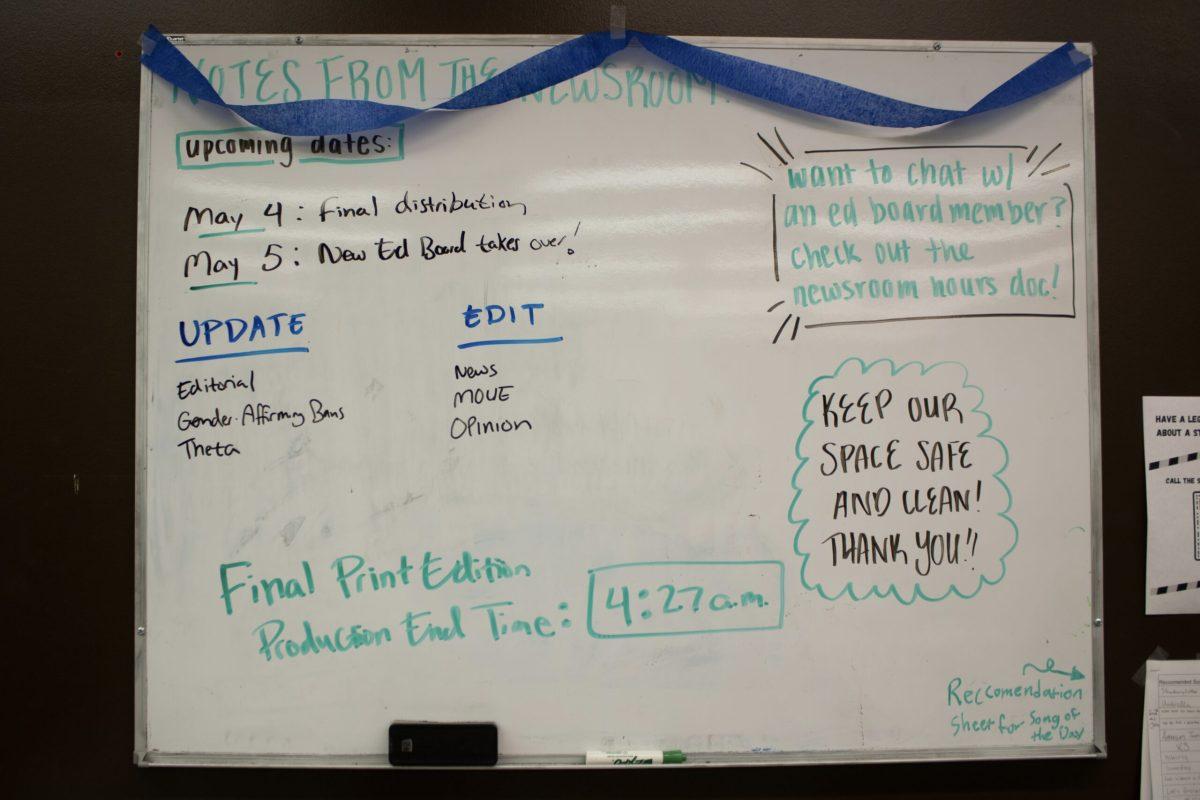 NOTES FROM THE NEWSROOM:
upcoming dates:
May 4: Final distribution
May 5: New Ed Board takes over!
UPDATE
Editorial
Gender-Affirming Bans
Theta
EDIT
News
MOVE
Opinion
want to chat w/
an ed board member?
check out the
newsroom hours doc!
KEEP OUR
SPACE SAFE
AND CLEAN!
THANK YOU!!
Final Print Edition
Production End Time: 4:27a.m.
Reccomendation
Sheet for Song of
the Day
HAVE A LEG
ABOUT A ST
CALL THE S